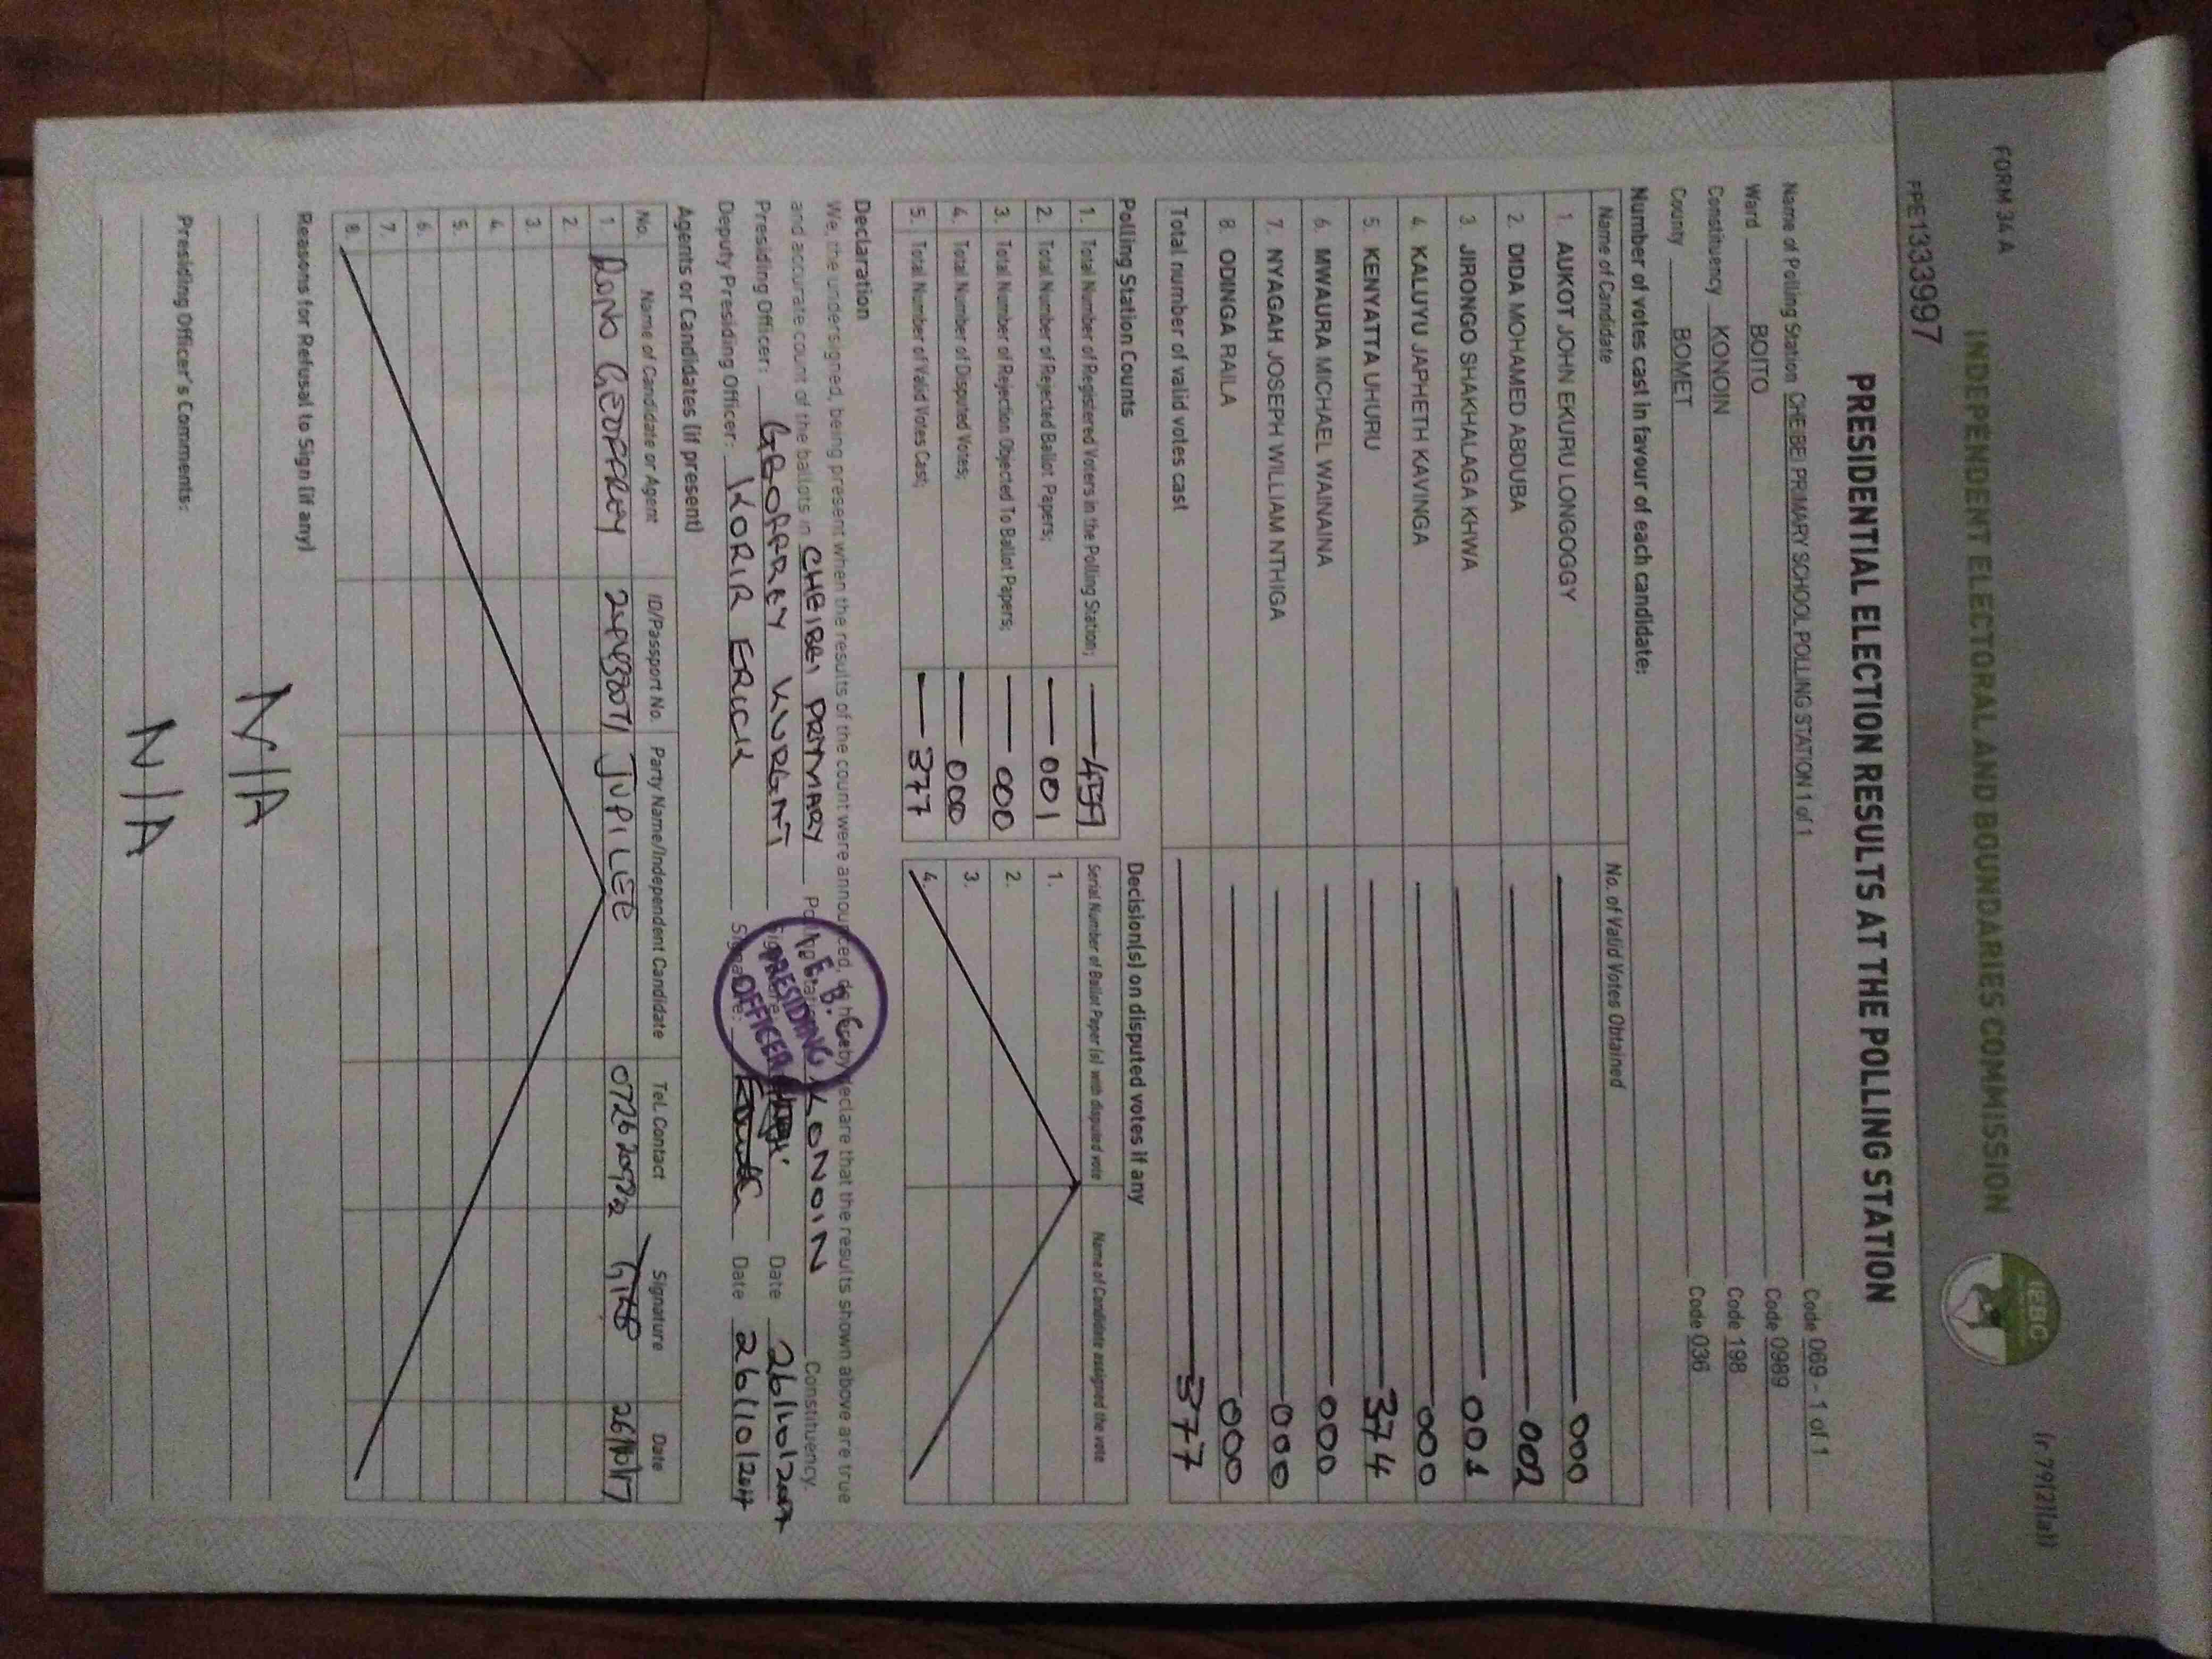 FORM 34 A
(r 79(2)(a))
INDEPENDENT ELECTORAL AND BOUNDARIES COMMISSION
IEBC
PPE1333997
PRESIDENTIAL ELECTION RESULTS AT THE POLLING STATION
Name of Polling Station CHEIBEI PRIMARY SCHOOL POLLING STATION 1 of 1 Code 069 - 1 of 1
Ward BOITO Code 0989
Constituency KONOIN Code 198
County BOMET Code 036
Number of votes cast in favour of each candidate:
Name of Candidate No. of Valid Votes Obtained
1. AUKOT JOHN EKURU LONGOGGY 000
2. DIDA MOHAMED ABDUBA 002
3. JIRONGO SHAKHALAGA KHWA 001
4. KALUYU JAPHETH KAVINGA 000
5. KENYATTA UHURU 374
6. MWAURA MICHAEL WAINAINA 000
7. NYAGAH JOSEPH WILLIAM NTHIGA 000
8. ODINGA RAILA 000
Total number of valid votes cast 377
Polling Station Counts
1. Total Number of Registered Voters in the Polling Station;
2. Total Number of Rejected Ballot Papers; 001
3. Total Number of Rejection Objected To Ballot Papers; 000
4. Total Number of Disputed Votes; 000
5. Total Number of Valid Votes Cast; 377
Decision(s) on disputed votes if any
Serial Number of Ballot Paper(s) with disputed vote Name of Candidate assigned the vote
1.
2.
3.
4.
Declaration
We, the undersigned, being present when the results of the count were announced, do hereby declare that the results shown above are true
and accurate count of the ballots in CHEIBEI PRIMARY Polling Station KONOIN Constituency.
Presiding Officer: GEOFFREY Signature: Date 26/10/2017
Deputy Presiding Officer: KORIR ERICK Signature: Date 26/10/2017
PRESIDING
OFFICER
Agents or Candidates (if present)
No. Name of Candidate or Agent ID/Passport No. Party Name/Independent Candidate Tel. Contact Signature Date
1. RONO GEOFFREY JUPILEE 26/10/17
2.
3.
4.
5.
6.
7.
8.
Reasons for Refusal to Sign (if any)
N/A
Presiding Officer's Comments:
N/A